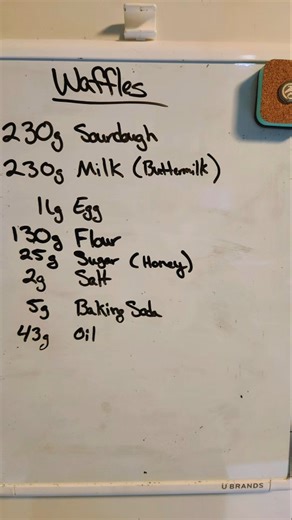 Waffles
230g Sourdough
230g Milk (Buttermilk)
1lg Egg
130g Flour
25g Sugar (Honey)
2g Salt
5g Baking Soda
43g Oil
U BRANDS